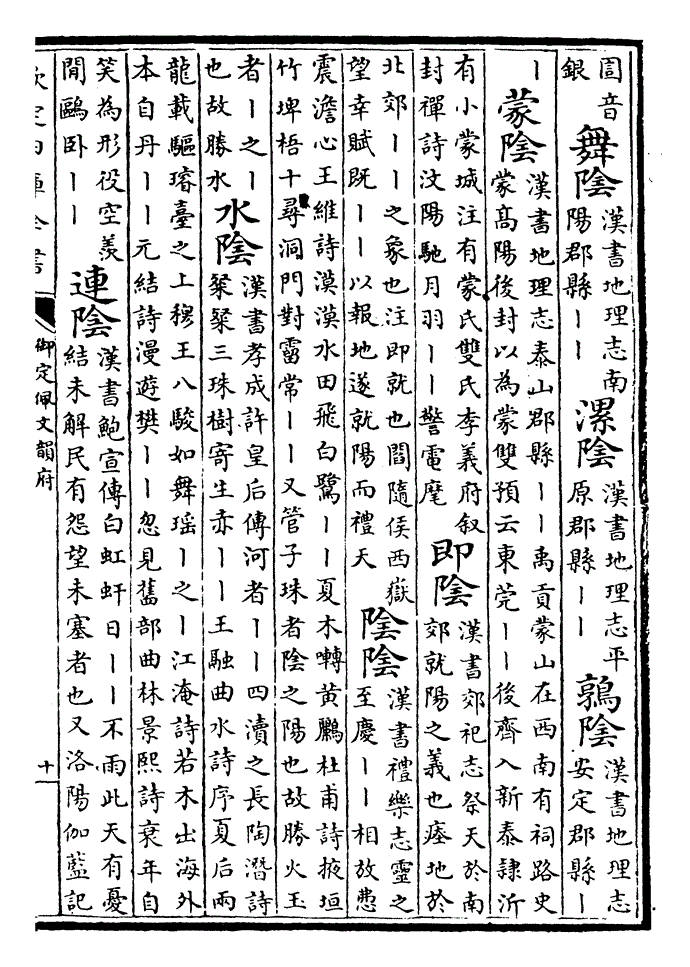 圁音
銀
舞陰
漢書地理志南
陽郡縣丨丨
漯陰
漢書地理志平
原郡縣丨丨
鶉陰
漢書地理志
安定郡縣丨
丨
蒙陰
漢書地理志泰山郡縣丨丨禹貢蒙山在西南有祠路史
蒙髙陽後封以為蒙雙預云東莞丨丨後齊入新泰隷沂
有小蒙城注有蒙氏雙氏李義府叙
封禪詩汶陽馳月羽丨丨警電麾
即陰
漢書郊祀志祭天於南
郊就陽之義也瘞地於
北郊丨丨之象也注即就也閻隨侯西嶽
望幸賦既丨丨以報地遂就陽而禮天
陰陰
漢書禮樂志靈之
至慶丨丨相放悲
震澹心王維詩漠漠水田飛白鷺丨丨夏木囀黃鸝杜甫詩掖垣
竹埤梧十尋洞門對霤常丨丨又管子珠者陰之陽也故勝火玉
者丨之丨
也故勝水
水陰
漢書孝成許皇后傳河者丨丨四瀆之長陶潛詩
粲粲三珠樹寄生赤丨丨王融曲水詩序夏后兩
龍載驅璿臺之上穆王八駿如舞瑶丨之丨江淹詩若木出海外
本自丹丨丨元結詩漫遊樊丨丨忽見舊部曲林景熙詩衰年自
笑為形役空羡
閒鷗卧丨丨
連陰
漢書鮑宣傳白虹虷日丨丨不雨此天有憂
結未解民有怨望未塞者也又洛陽伽藍記
欽定四庫全書
御定佩文韻府
十